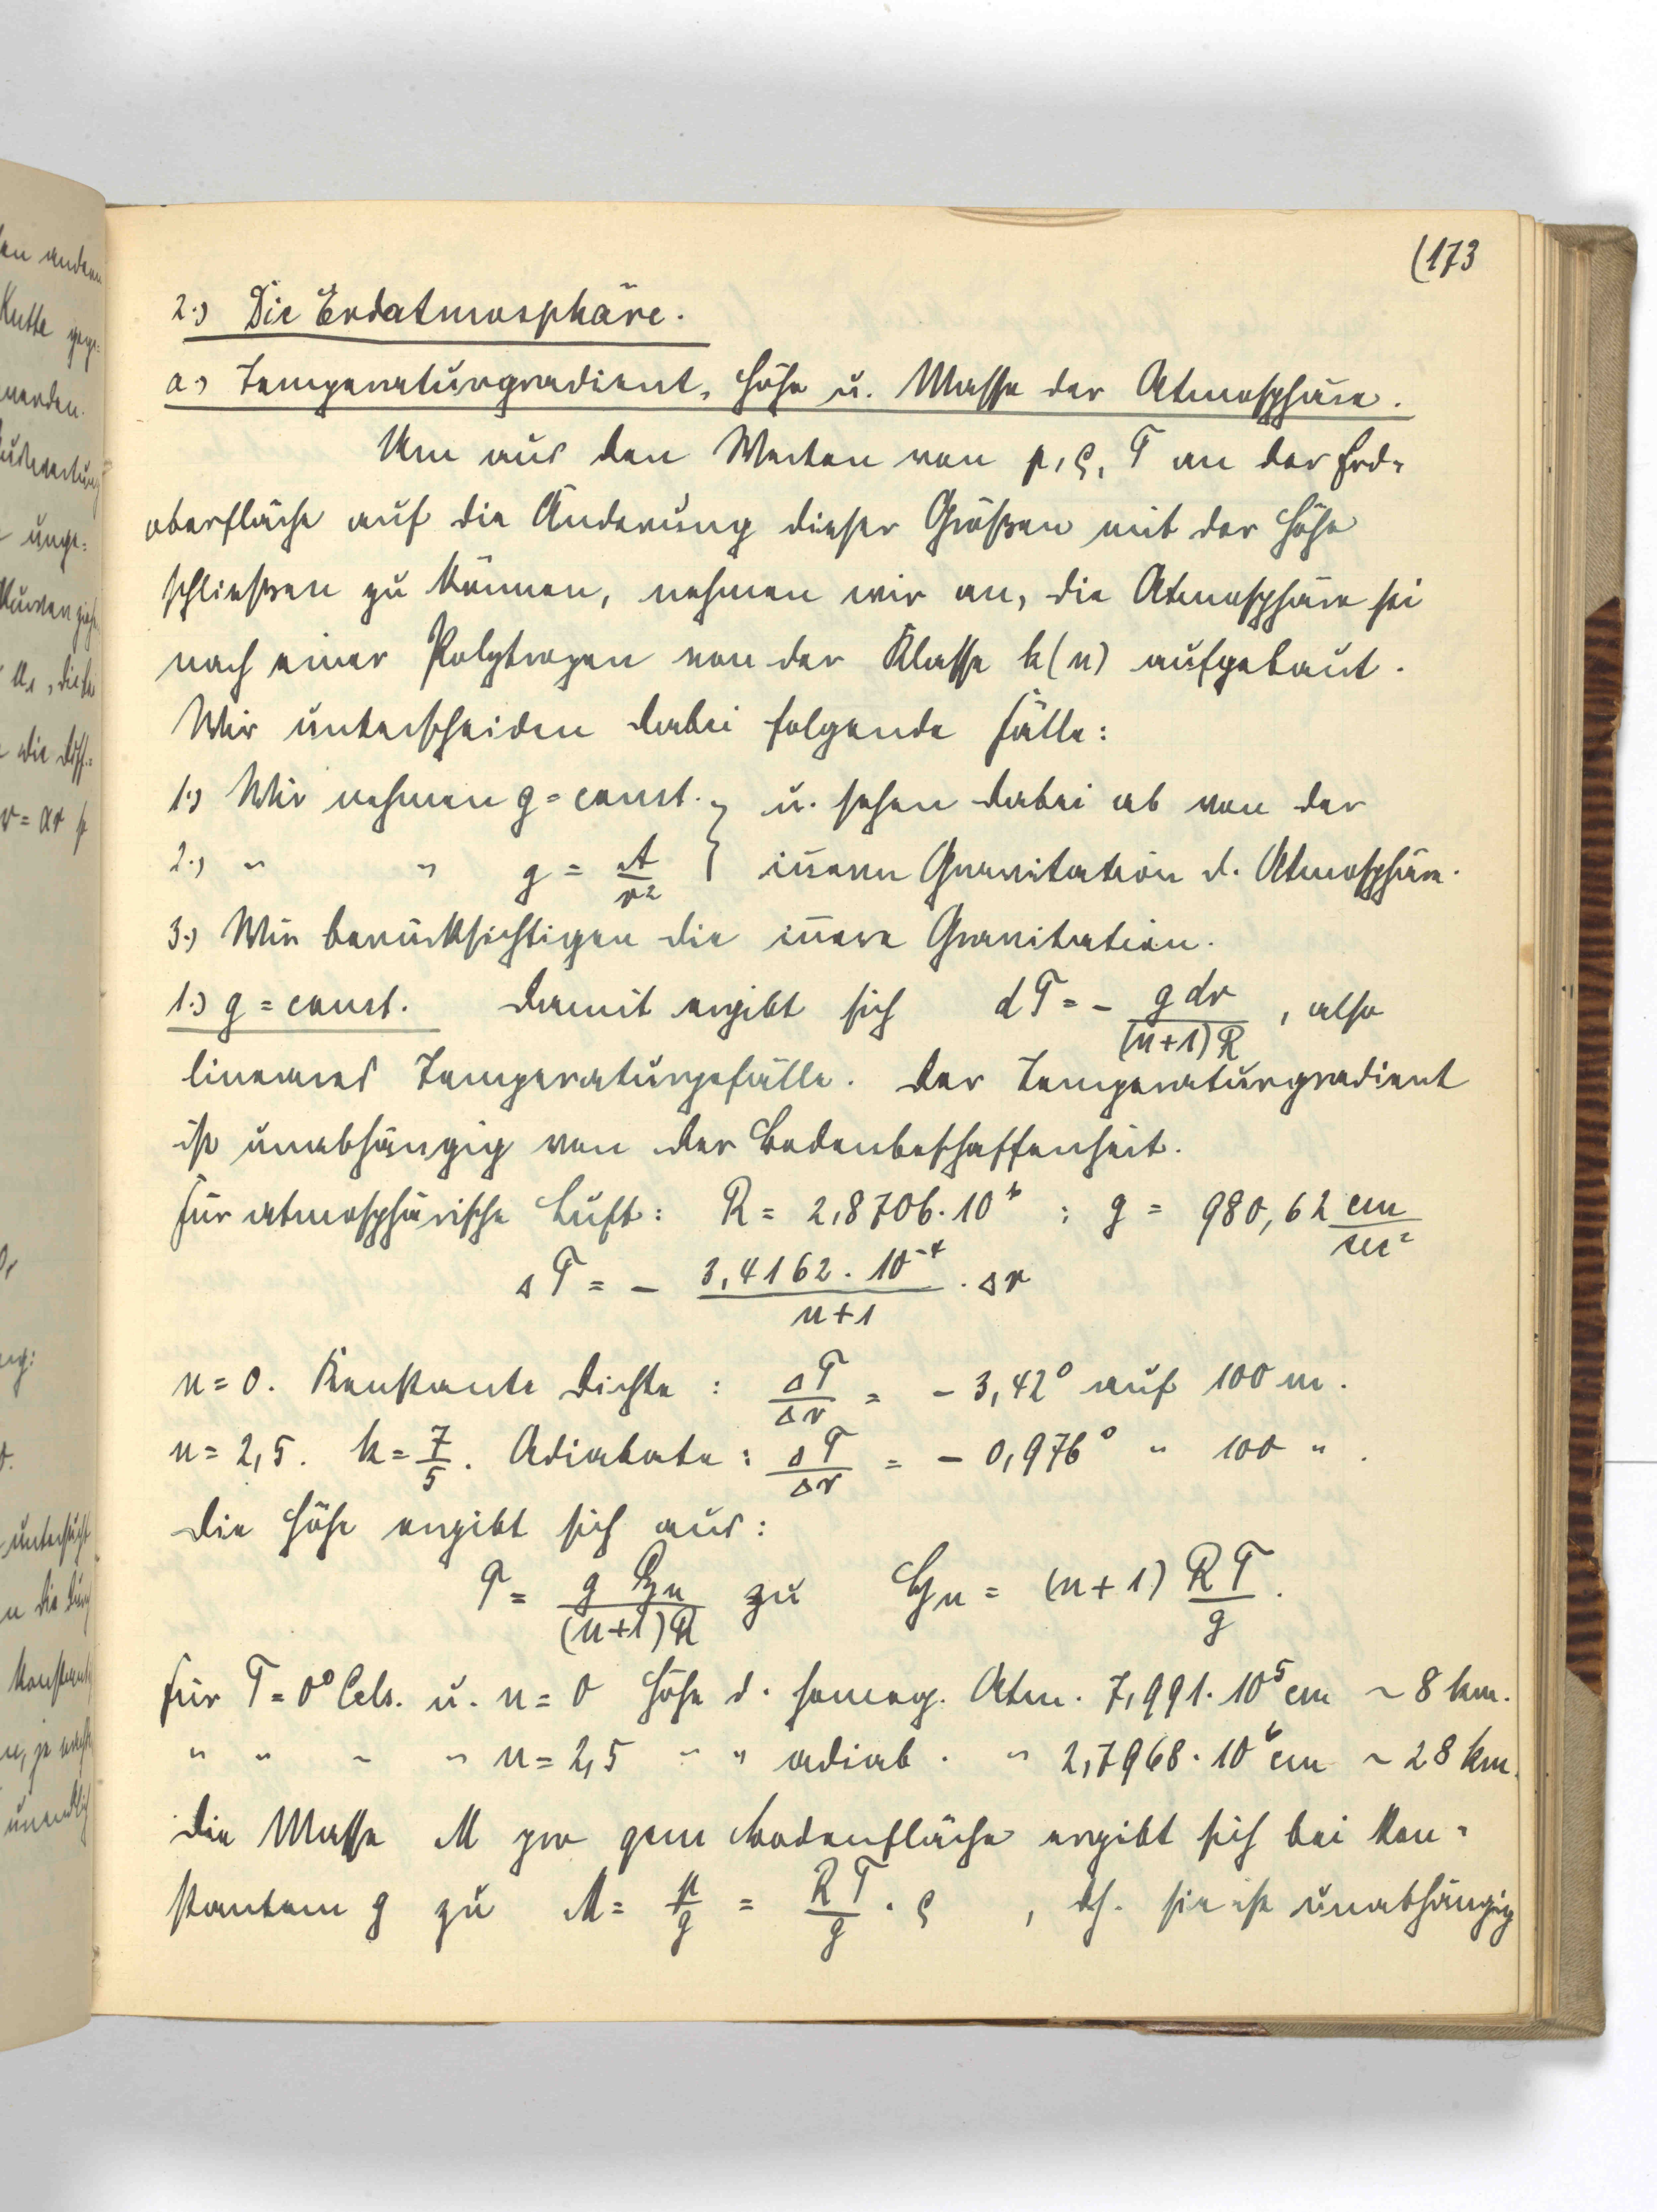 (173
2.) Die Erdatmosphäre.
a.) Temperaturgradient, Höhe u. Masse der Atmosphäre.
Um aus den Werten von p, ρ, T an der Erd-
oberfläche auf die Änderung dieser Größen mit der Höhe
schließen zu können, nehmen wir an, die Atmosphäre sei
nach einer Polytropen von der Klasse k(n) aufgebaut.
Wir unterscheiden dabei folgende Fälle:
1.) Wir nehmen g = const. } u. sehen dabei ab von der
2.) " " g = A/r² } in̄ern Gravitation d. Atmosphäre.
3.) Wir berücksichtigen die in̄ere Gravitation.
1.) g = const. Damit ergibt sich dT = - g dr/((n+1)R), also
lineares Temperaturgefälle. Der Temperaturgradient
ist unabhängig von der Bodenbeschaffenheit.
Für atmosphärische Luft: R = 2,8706·10⁶ ; g = 980,62 cm/sec²
ΔT = - (3,4162·10⁻⁴)/(n+1) · Δr
n = 0. Konstante Dichte : ΔT/Δr = - 3,42° auf 100 m.
n = 2,5. k = 7/5. Adiabate : ΔT/Δr = - 0,976° " 100 ".
Die Höhe ergibt sich aus:
T = g ℌn/((n+1)R) zu ℌn = (n+1) RT/g.
Für T = 0° Cels. u. n = 0 Höhe d. homog. Atm. 7,991·10⁵ cm ~ 8 km.
" " " " n = 2,5 " " adiab. " 2,7968·10⁶ cm ~ 28 km.
Die Masse M pro qcm Bodenfläche ergibt sich bei kon-
stantem g zu M = p/g = RT/g · ρ , dh. sie ist unabhängig